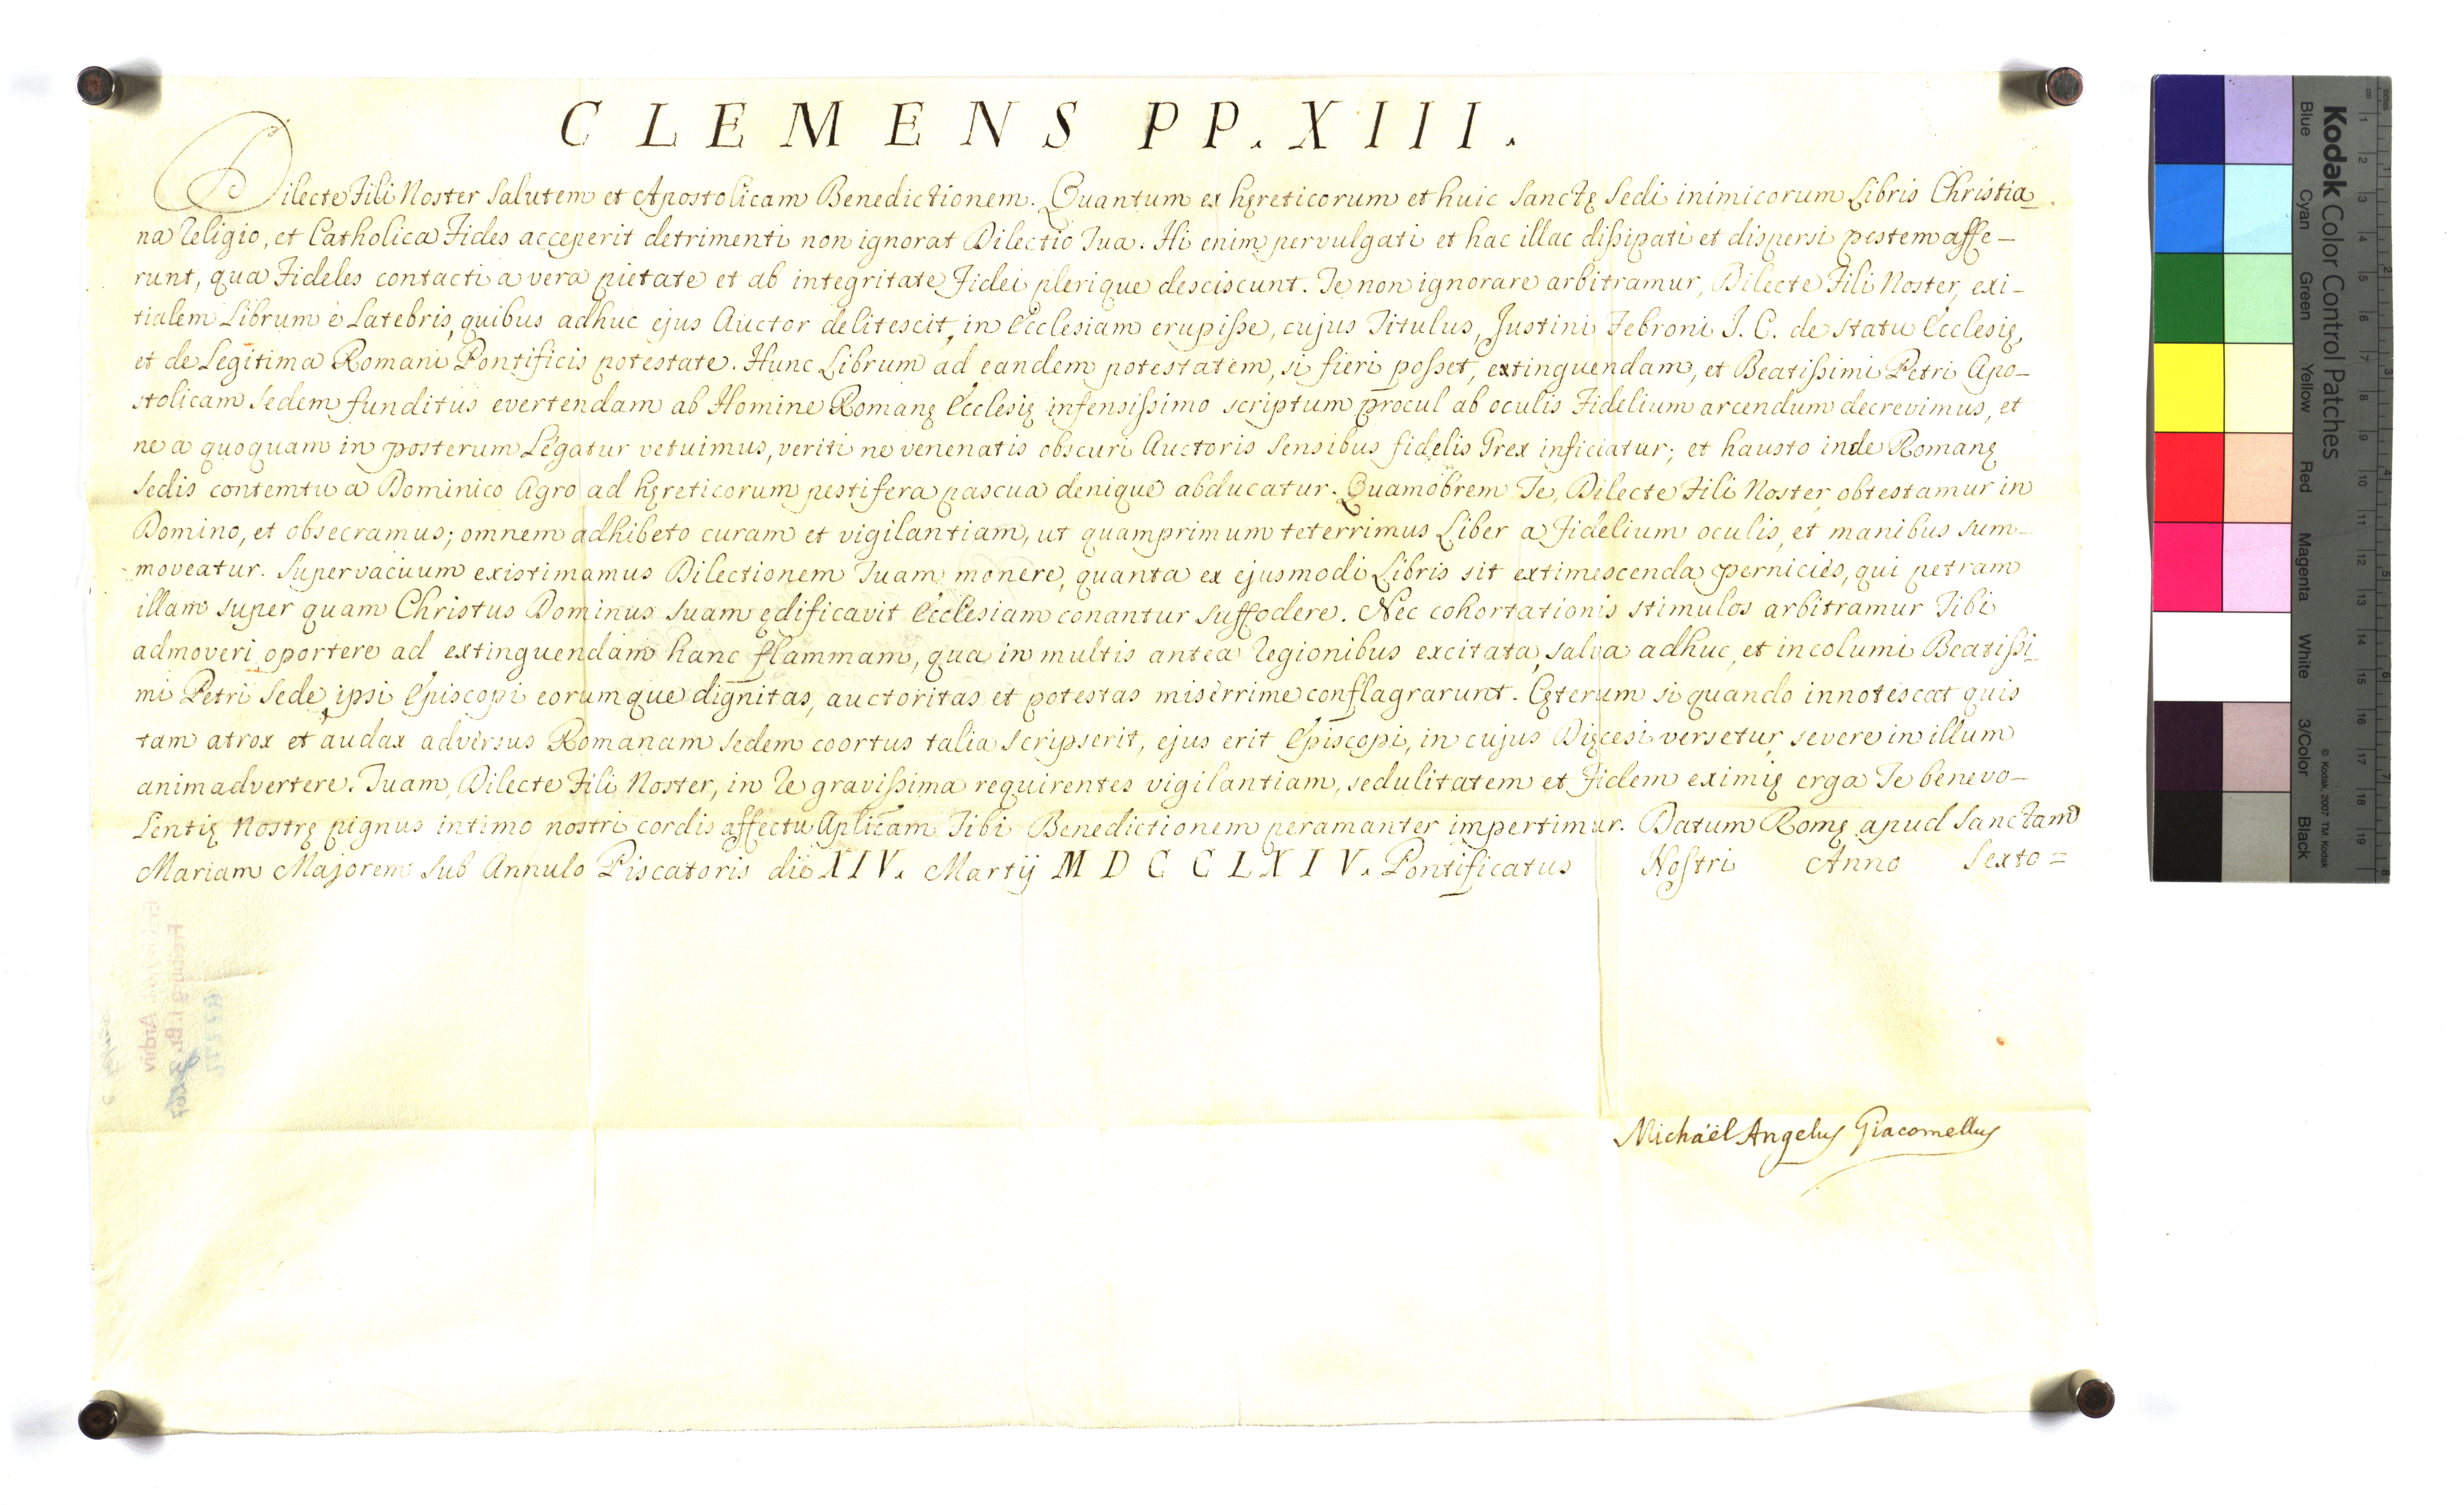 CLEMENS PP. XIII.
Dilecte Fili Noster Salutem et Apostolicam Benedictionem. Quantum ex hęreticorum et huic Sanctę Sedi inimicorum Libris Christia-
na Religio, et Catholica Fides acceperit detrimenti non ignorat Dilectio Tua. Hi enim pervulgati et hac illac dißipati et dispersi pestem affe-
runt, qua Fideles contacti a vera pietate et ab integritate Fidei plerique desciscunt. Te non ignorare arbitramur, Dilecte Fili Noster, exi-
tialem Librum è Latebris, quibus adhuc ejus Auctor delitescit, in Ecclesiam erupiße, cujus Titulus, Justini Febroni J. C. de Statu Ecclesię,
et de Legitima Romani Pontificis potestate. Hunc Librum ad eandem potestatem, si fieri poßet, extinguendam, et Beatißimi Petri Apo-
stolicam Sedem funditus evertendam ab Homine Romanę Ecclesię infensißimo scriptum procul ab oculis Fidelium arcendum decrevimus, et
ne a quoquam in posterum Legatur vetuimus, veriti ne venenatis obscuri Auctoris Sensibus fidelis Grex inficiatur; et hausto inde Romanę
Sedis contemtu a Dominico Agro ad hęreticorum pestifera pascua denique abducatur. Quamobrem Te, Dilecte Fili Noster, obtestamur in
Domino, et obsecramus; omnem adhibeto curam et vigilantiam, ut quamprimum teterrimus Liber a Fidelium oculis, et manibus sum-
moveatur. Supervacuum existimamus Dilectionem Tuam monere, quanta ex ejusmodi Libris sit extimescenda pernicies, qui petram
illam super quam Christus Dominus suam ędificavit Ecclesiam conantur suffodere. Nec cohortationis stimulos arbitramur Tibi
admoveri oportere ad extinguendam hanc flammam, qua in multis antea Regionibus excitata, salva adhuc, et incolumi Beatißi-
mi Petri Sede, ipsi Episcopi eorumque dignitas, auctoritas et potestas miserrime conflagrarunt. Cęterum si quando innotescat quis
tam atrox et audax adversus Romanam Sedem coortus talia scripserit, ejus erit Episcopi, in cujus Dięcesi versetur, severe in illum
animadvertere. Tuam, Dilecte Fili Noster, in Re gravißima requirentes vigilantiam, sedulitatem et Fidem eximię erga Te benevo-
Lentię Nostrę pignus intimo nostri cordis affectu Aplicam Tibi Benedictionem peramanter impertimur. Datum Romę apud Sanctam
Mariam Majorem sub Annulo Piscatoris die XIV. Martij MDCCLXIV. Pontificatus Nostri Anno Sexto=
Michaël Angelus Giacomellus
Kodak Color Control Patches
Blue Cyan Green Yellow Red Magenta White 3/Color Black
© Kodak, 2007 TM: Kodak